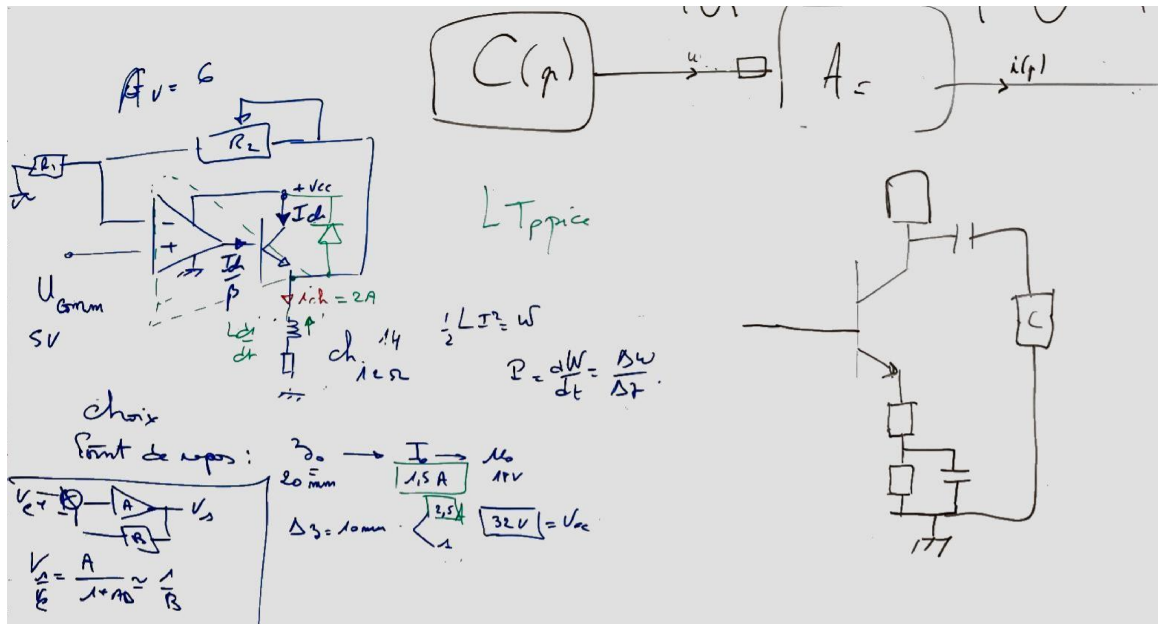 C(p)
u
A =
i(p)
Av = 6
R1
R2
+Vcc
Ich
-
+
Ich/β
Ucomm
5V
ich = 2A
L di/dt
ch
12Ω
LTspice
1/2 L I² = W
P = dW/dt = ΔW/Δt
C
choix
Point de repos : z0 → I0 → u0
20 mm 1,5 A 18V
Δz = 10mm 2,5A 32V = Vcc
1
Ve + A Vs
B
Vs/Ve = A/(1+AB) ≈ 1/B